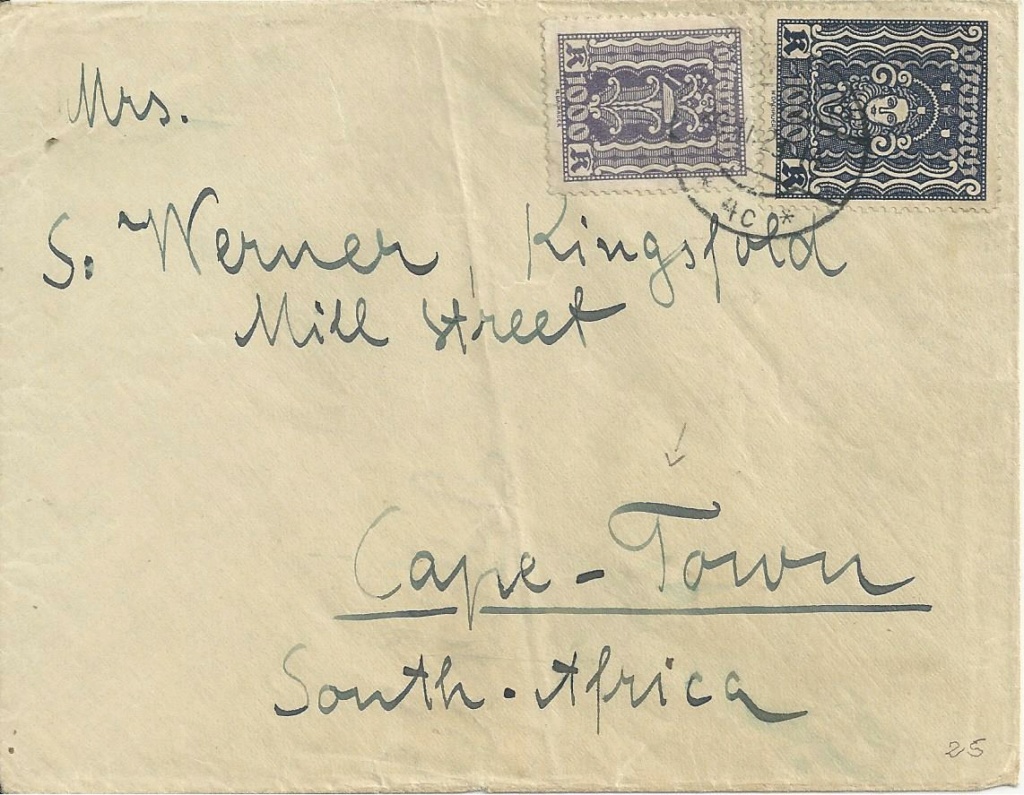 K 1000 K
Österreich
K 1000 K
Österreich
* 4c *
Mrs.
S. Werner, Kingsfold
Mill Street
Cape-Town
South-Africa
25